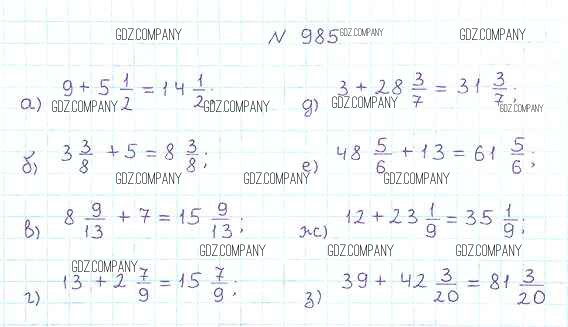 GDZ.COMPANY № 985 GDZ.COMPANY GDZ.COMPANY
а) 9 + 5 1/2 = 14 1/2; д) 3 + 28 3/7 = 31 3/7;
GDZ.COMPANY GDZ.COMPANY GDZ.COMPANY GDZ.COMPANY
б) 3 3/8 + 5 = 8 3/8; е) 48 5/6 + 13 = 61 5/6;
GDZ.COMPANY GDZ.COMPANY GDZ.COMPANY
в) 8 9/13 + 7 = 15 9/13; ж) 12 + 23 1/9 = 35 1/9;
GDZ.COMPANY GDZ.COMPANY GDZ.COMPANY
GDZ.COMPANY
г) 13 + 2 7/9 = 15 7/9; з) 39 + 42 3/20 = 81 3/20